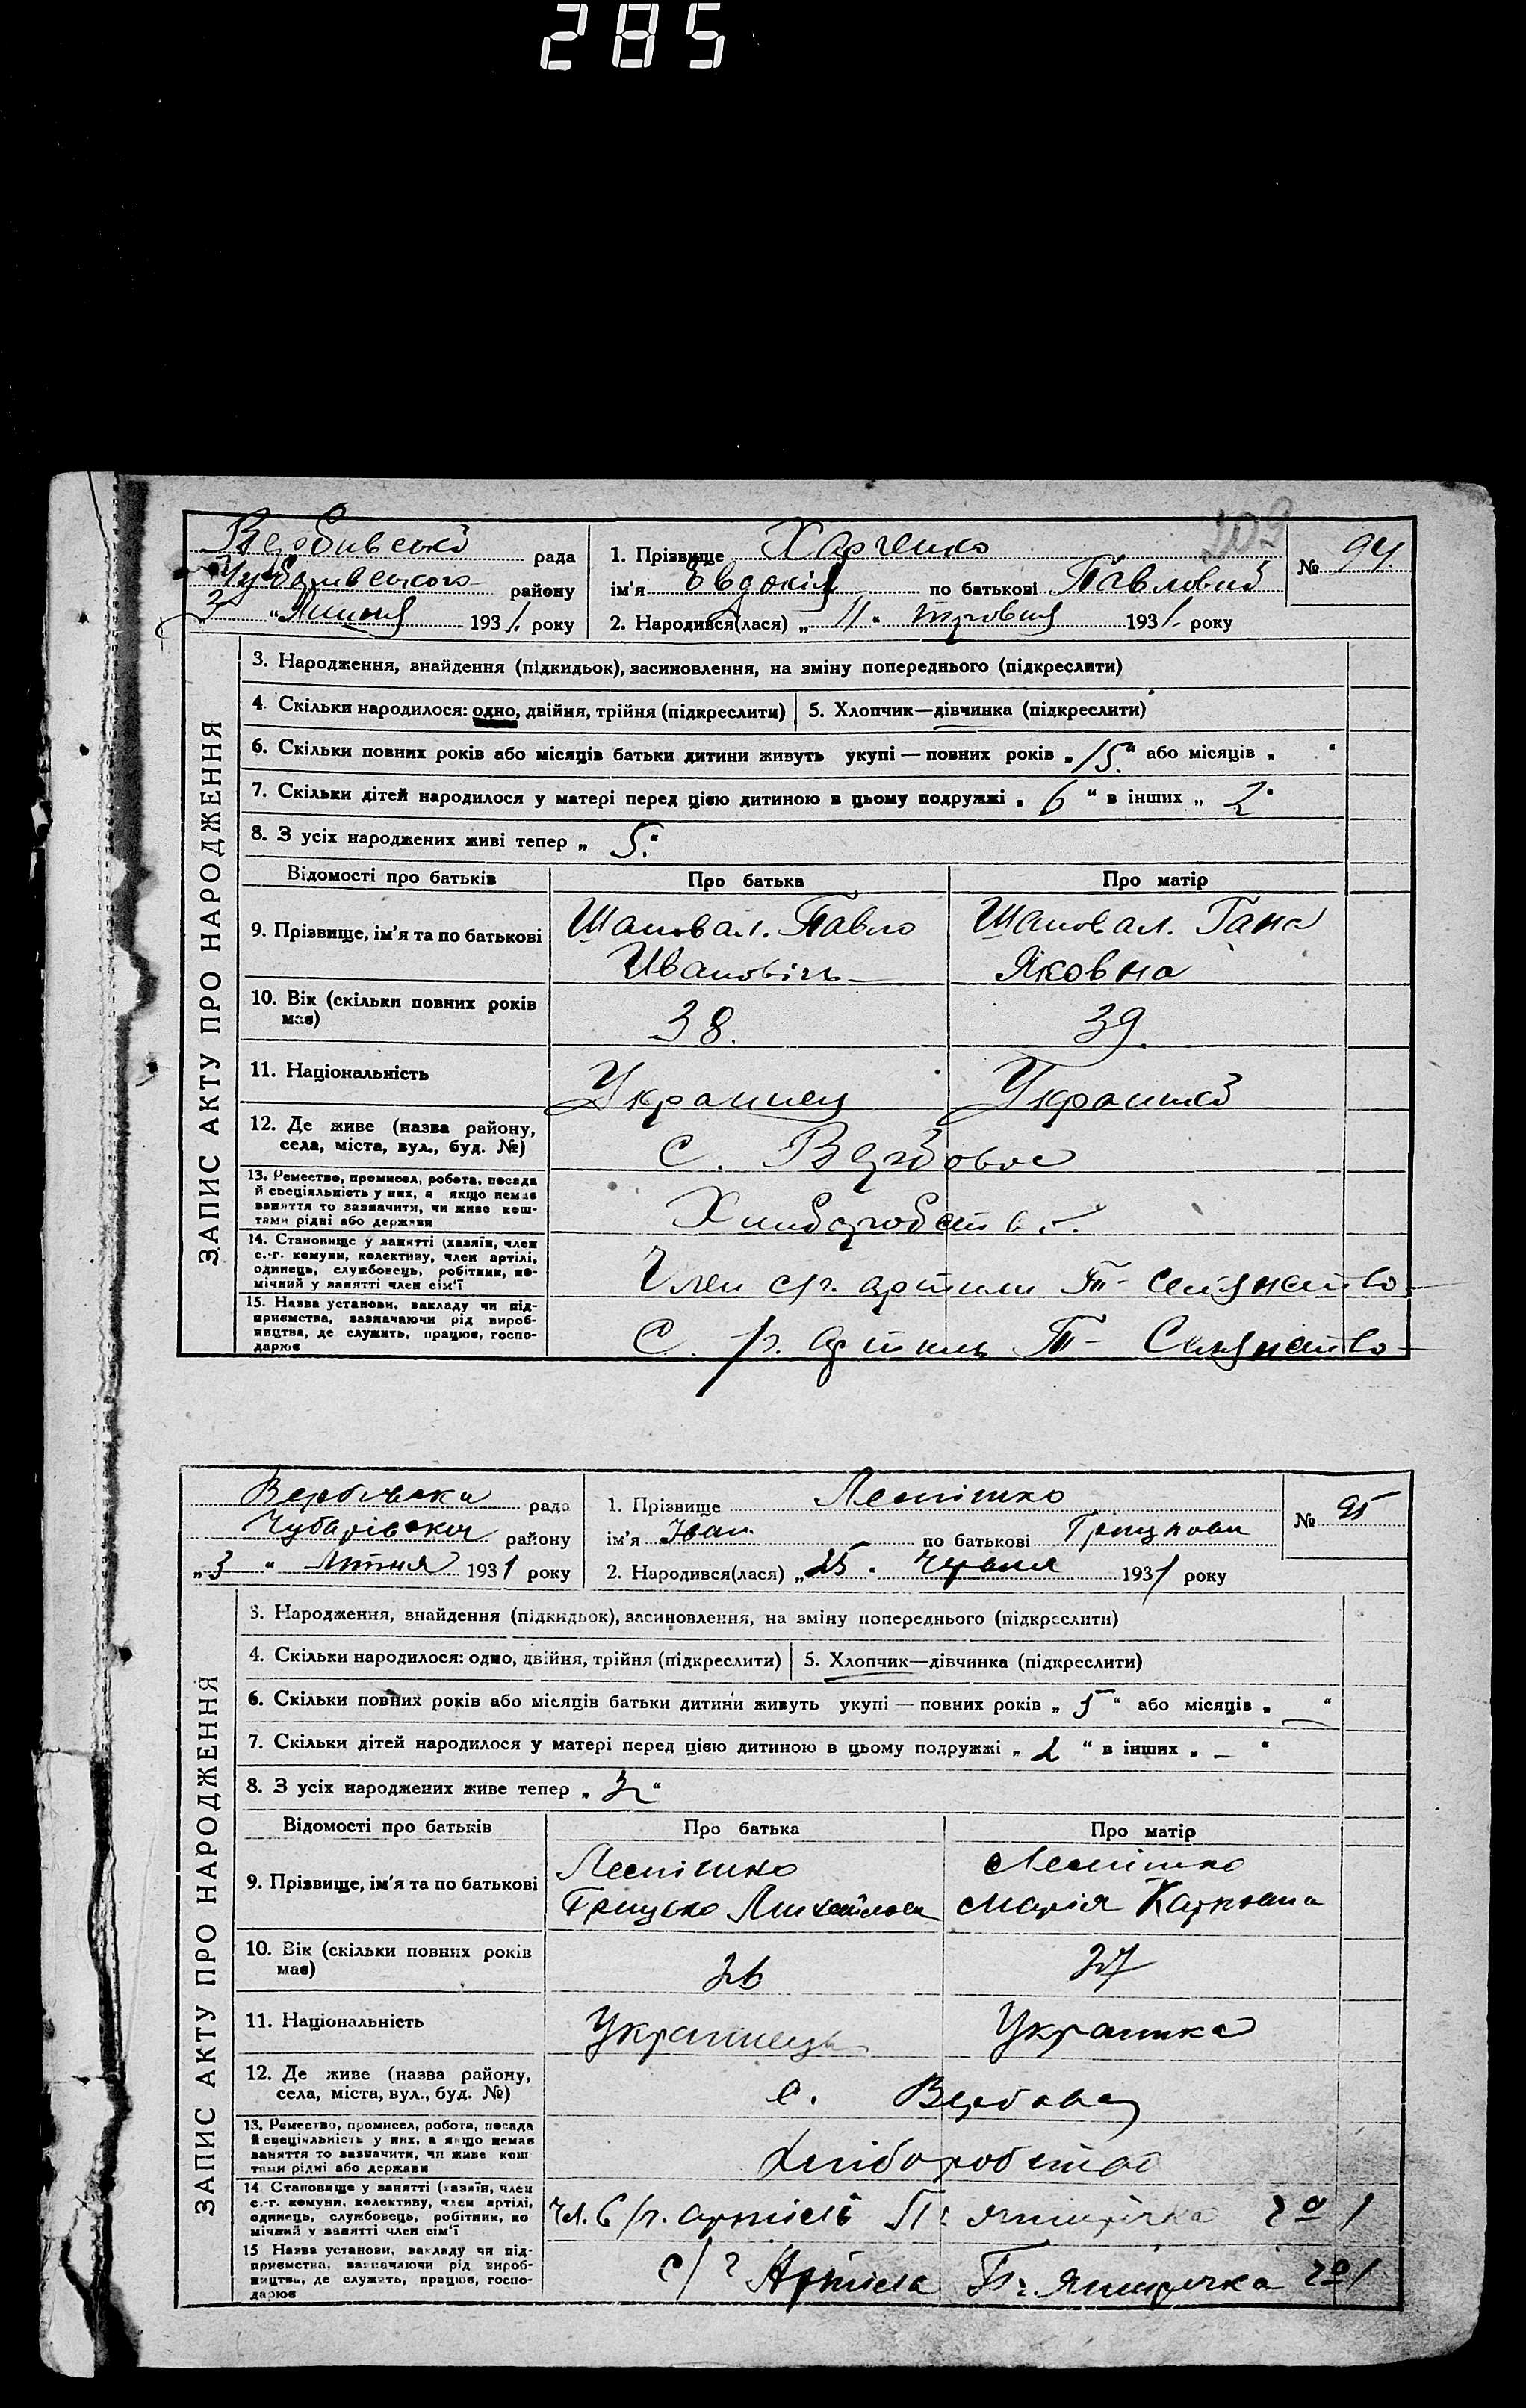 285
209
Вербивська рада
Чубаривського району
3 " Липня 1931. року
1. Прізвище Харченко
ім'я Евдокія по батькові Павловна
2. Народився(лася) „ 11 " травня 1931. року
№ 94.
ЗАПИС АКТУ ПРО НАРОДЖЕННЯ
3. Народження, знайдення (підкидьок), засиновлення, на зміну попереднього (підкреслити)
4. Скільки народилося: одно, двійня, трійня (підкреслити) 5. Хлопчик—дівчинка (підкреслити)
6. Скільки повних років або місяців батьки дитини живуть укупі — повних років „ 15. " або місяців „ "
7. Скільки дітей народилося у матері перед цією дитиною в цьому подружжі „ 6 " в інших „ 2 "
8. З усіх народжених живі тепер „ 5. "
Відомості про батьків Про батька Про матір
9. Прізвище, ім'я та по батькові Шаповал. Павло Шаповал. Гана
Ивановічь Яковна
10. Вік (скільки повних років
має) 38. 39.
11. Національність Украинец Украинка
12. Де живе (назва району,
села, міста, вул., буд. №) С. Вербовое
13. Ремество, промисел, робота, посада
й спеціяльність у них, а якщо немає
заняття то зазначити, чи живе кош-
тами рідні або держави
14. Становище у занятті (хазяїн, член
с.-г. комуни, колективу, член артілі,
одинець, службовець, робітник, по-
мічний у занятті член сім'ї Член с/г. артили
15. Назва установи, закладу чи під-
приємства, зазначаючи рід вироб-
ництва, де служить, працює, госпо-
дарює С. г. артиль
Вербівська рада
Чубарівська району
„ 3 " Липня 1931 року
1. Прізвище
ім'я Іван по батькові
2. Народився(лася) „ 25 . Червня 1931 року
№ 95
ЗАПИС АКТУ ПРО НАРОДЖЕННЯ
3. Народження, знайдення (підкидьок), засиновлення, на зміну попереднього (підкреслити)
4. Скільки народилося: одно, двійня, трійня (підкреслити) 5. Хлопчик—дівчинка (підкреслити)
6. Скільки повних років або місяців батьки дитини живуть укупі — повних років „ 5 " або місяців „ — "
7. Скільки дітей народилося у матері перед цією дитиною в цьому подружжі „ 2 " в інших „ — "
8. З усіх народжених живе тепер „ "
Відомості про батьків Про батька Про матір
9. Прізвище, ім'я та по батькові
Грицько Марія
10. Вік (скільки повних років
має) 26 27
11. Національність Украинець Украинка
12. Де живе (назва району,
села, міста, вул., буд. №) с.
13. Ремество, промисел, робота, посада
й спеціяльність у них, а якщо немає
заняття то зазначити, чи живе кош
тами рідні або держави Хліборобство
14. Становище у занятті (хазяїн, член
с.-г. комуни, колективу, член артілі,
одинець, службовець, робітник, по
мічний у занятті член сім'ї Чл. с/г. артілі
15 Назва установи, закладу чи під-
приємства, зазначаючи рід вироб-
ництва, де служить, працює, госпо-
дарює с/г Артіль